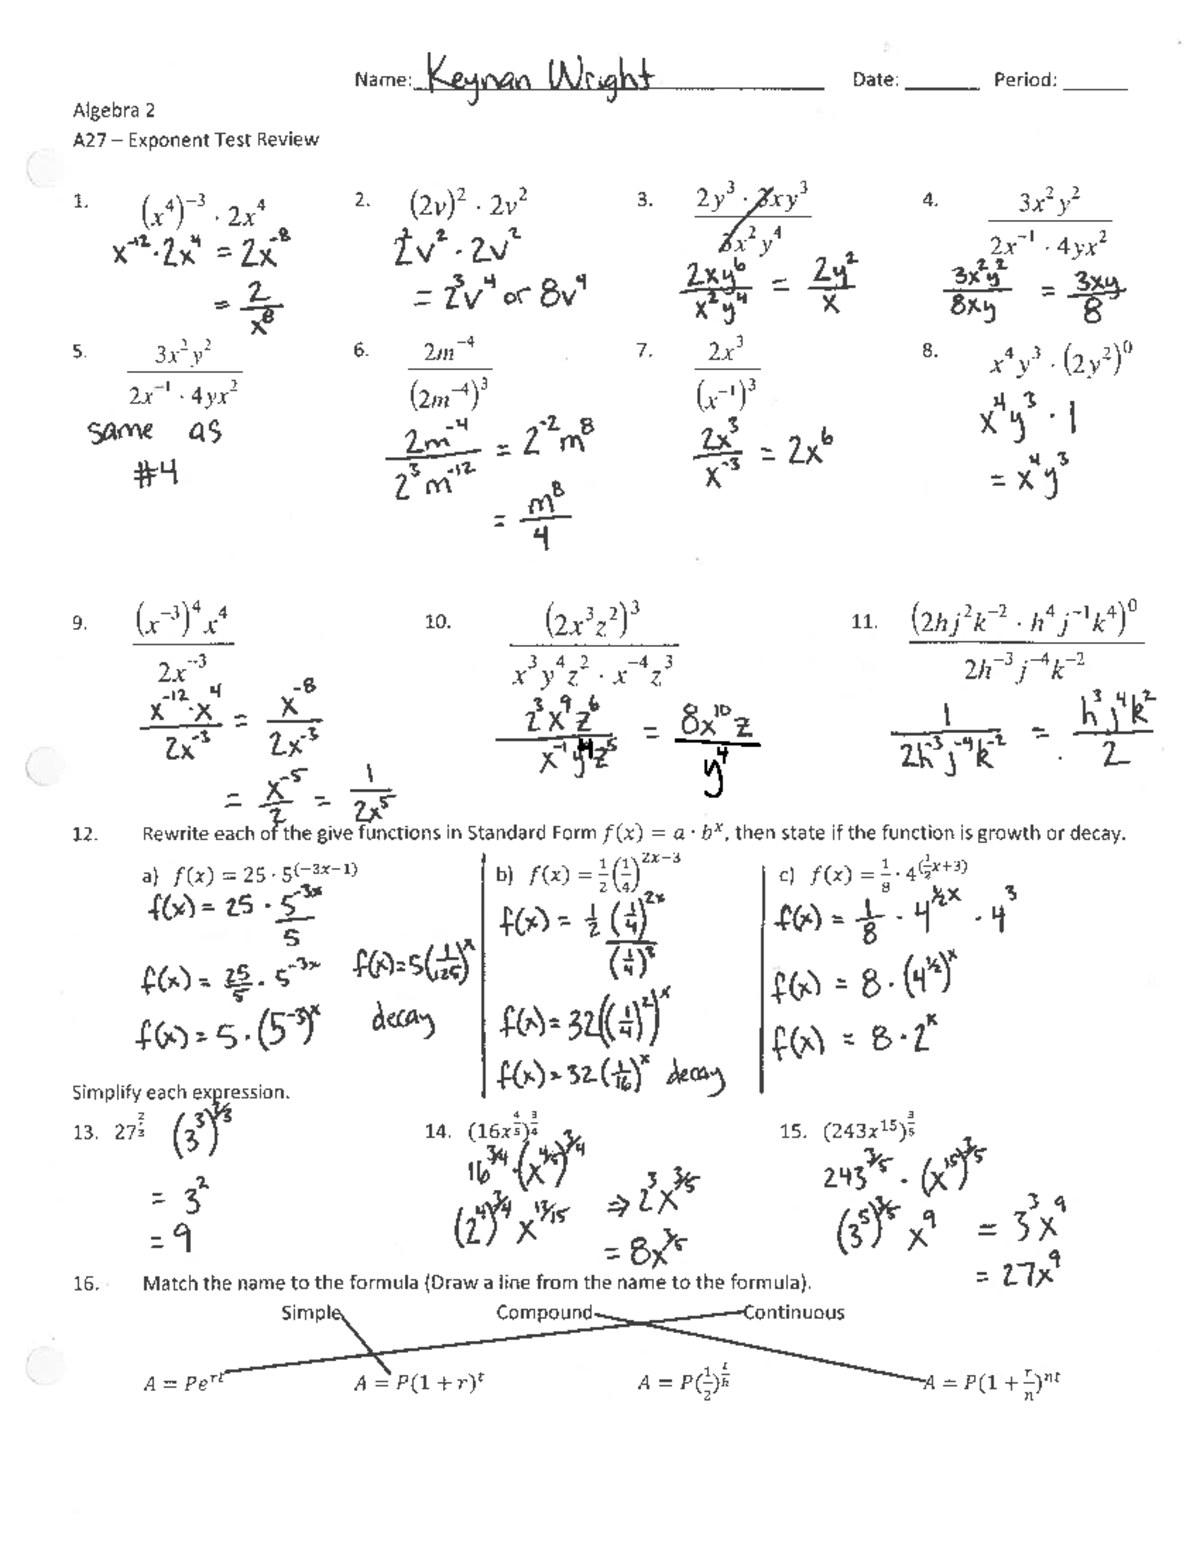 Name: Keynan Wright Date: ______ Period: ______
Algebra 2
A27 – Exponent Test Review
1. (x⁴)⁻³ · 2x⁴
x⁻¹² · 2x⁴ = 2x⁻⁸
= 2/x⁸
2. (2v)² · 2v²
2²v² · 2v²
= 2³v⁴ or 8v⁴
3. (2y³ · 3xy³)/(3x²y⁴)
2xy⁶/x²y⁴ = 2y²/x
4. 3x²y²/(2x⁻¹ · 4yx²)
3x²y²/8xy = 3xy/8
5. 3x²y²/(2x⁻¹ · 4yx²)
same as
#4
6. 2m⁻⁴/(2m⁻⁴)³
2m⁻⁴/2³m⁻¹² = 2⁻²m⁸
= m⁸/4
7. 2x³/(x⁻¹)³
2x³/x⁻³ = 2x⁶
8. x⁴y³ · (2y²)⁰
x⁴y³ · 1
= x⁴y³
9. (x⁻³)⁴x⁴/2x⁻³
x⁻¹² · x⁴/2x⁻³ = x⁻⁸/2x⁻³
= x⁻⁵/2 = 1/2x⁵
10. (2x³z²)³/(x³y⁴z² · x⁻⁴z³)
2³x⁹z⁶/x⁻¹y⁴z⁵ = 8x¹⁰z/y⁴
11. (2hj²k⁻² · h⁴j⁻¹k⁴)⁰/2h⁻³j⁻⁴k⁻²
1/2h⁻³j⁻⁴k⁻² = h³j⁴k²/2
12. Rewrite each of the give functions in Standard Form f(x) = a · bˣ, then state if the function is growth or decay.
a) f(x) = 25 · 5^(−3x−1)
f(x) = 25 · 5^(-3x)/5
f(x) = 25/5 · 5^(-3x)
f(x) = 5 · (5⁻³)ˣ
f(x) = 5(1/125)ˣ
decay
b) f(x) = 1/2(1/4)^(2x−3)
f(x) = 1/2 (1/4)^(2x)/(1/4)³
f(x) = 32((1/4)²)ˣ
f(x) = 32(1/16)ˣ decay
c) f(x) = 1/8 · 4^(½x+3)
f(x) = 1/8 · 4^(½x) · 4³
f(x) = 8 · (4^½)ˣ
f(x) = 8 · 2ˣ
Simplify each expression.
13. 27^(2/3) (3³)^(2/3)
= 3²
= 9
14. (16x^(4/5))^(3/4)
16^(3/4) · (x^(4/5))^(3/4)
(2⁴)^(3/4) x^(12/15) ⇒ 2³x^(3/5)
= 8x^(3/5)
15. (243x¹⁵)^(3/5)
243^(3/5) · (x¹⁵)^(3/5)
(3⁵)^(3/5) x⁹ = 3³x⁹
= 27x⁹
16. Match the name to the formula (Draw a line from the name to the formula).
Simple Compound Continuous
A = Pe^(rt) A = P(1 + r)^t A = P(1/2)^(t/h) A = P(1 + r/n)^(nt)